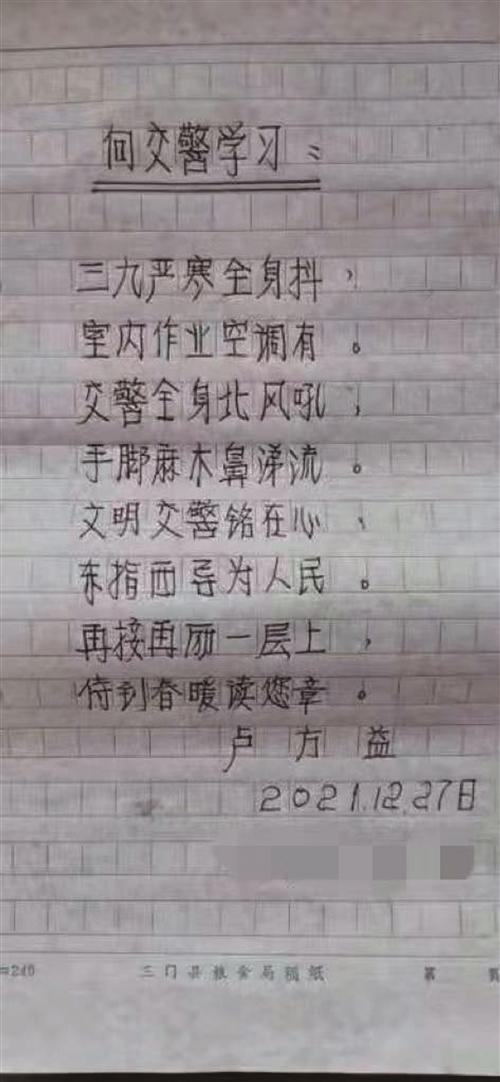 向交警学习:
三九严寒全身抖，
室内作业空调有。
交警全身北风吼，
手脚麻木鼻涕流。
文明交警铭在心、
东指西导为人民。
再接再励一层上，
侍到春暖读您章。
卢方益
2021.12.27日
=240 三门县粮食局稿纸 第 页